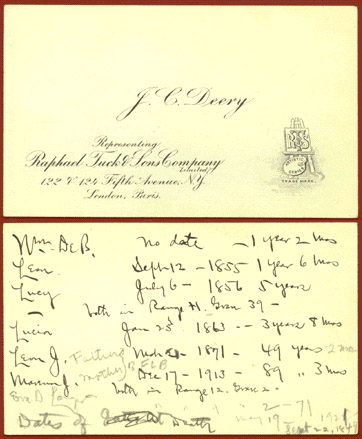 J. C. Deery
Representing
Raphael Tuck & Sons Company
Limited
122 & 124 Fifth Avenue, N.Y.
London, Paris.
TRADE MARK
Wm. De B. no date – 1 year 2 mos
Leon. Sept 12 – 1855 1 year 6 mos
Lucy July 6 – 1856 5 years
both in Range H. Grave 39 –
Lucia Jan 25 1863 – 3 years 8 mos
Leon J. Father 1871 – 49 years 2 mos
mother
Dec 17 – 1913 – 89 " 3 mos
both in Range 12. Grave 2.
Dates of Death
May 19
Sept 22, 18